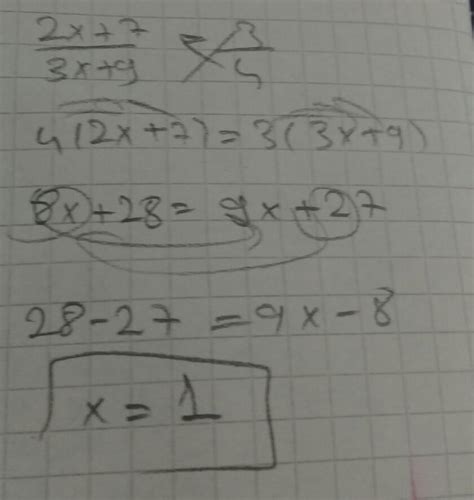 (2x+7)/(3x+9) = 3/4
4(2x+7)=3(3x+9)
8x+28=9x+27
28-27=9x-8
x=1